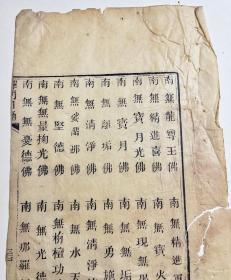 南無龍尊王佛　南無精進
南無精進喜佛　南無寶火
南無寶月光佛　南無現無
南無寶月佛　南無無垢
南無離垢佛　南無勇施
南無清淨佛　南無清淨
南無娑留那佛　南無水天
南無堅德佛　南無栴檀功
南無無量掬光佛　南無光德
南無無憂德佛　南無那羅